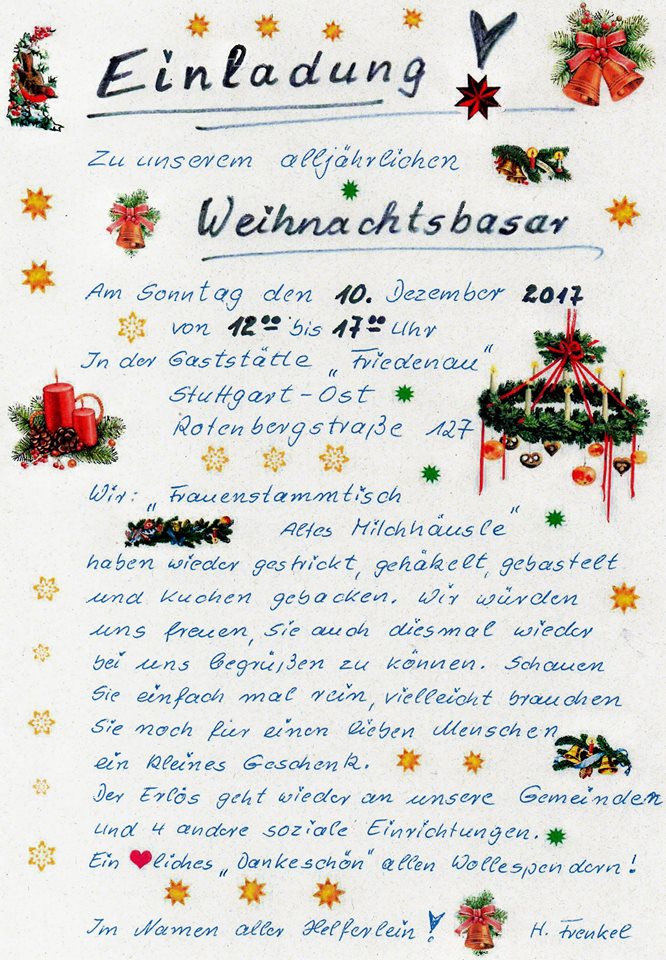 Einladung !
Zu unserem alljährlichen
Weihnachtsbasar
Am Sonntag den 10. Dezember 2017
von 12⁰⁰ bis 17⁰⁰ Uhr
In der Gaststätte „Friedenau"
Stuttgart-Ost
Rotenbergstraße 127
Wir: „Frauenstammtisch
Altes Milchhäusle"
haben wieder gestrickt, gehäkelt, gebastelt
und Kuchen gebacken. Wir würden
uns freuen, Sie auch diesmal wieder
bei uns begrüßen zu können. Schauen
Sie einfach mal rein, vielleicht brauchen
Sie noch für einen lieben Menschen
ein kleines Geschenk.
Der Erlös geht wieder an unsere Gemeinden
und 4 andere soziale Einrichtungen.
Ein ❤liches „Dankeschön" allen Wollespendern!
Im Namen aller Helferlein! H. Frenkel